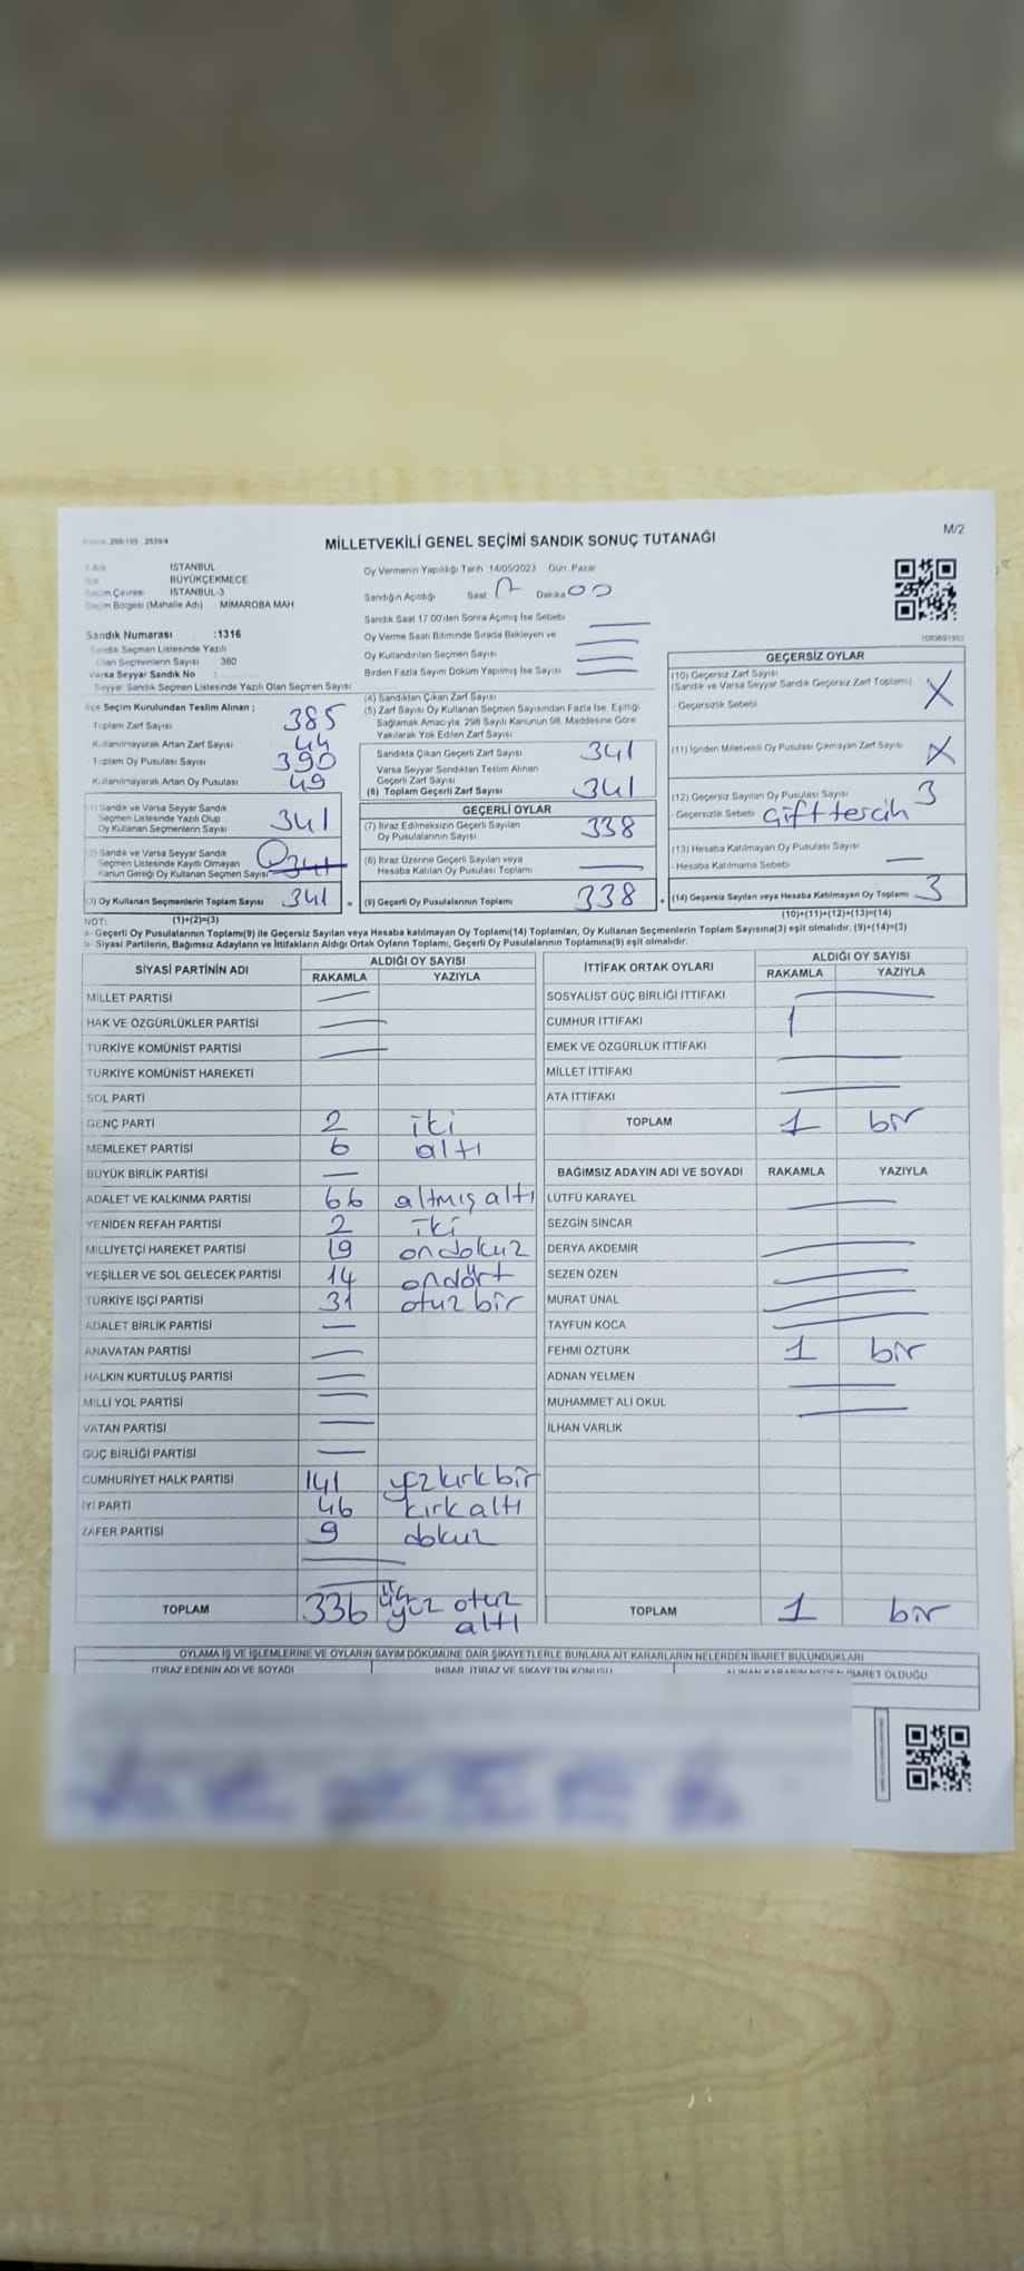 M/2
MİLLETVEKİLİ GENEL SEÇİMİ SANDIK SONUÇ TUTANAĞI
İSTANBUL
BÜYÜKÇEKMECE
Seçim Çevresi İSTANBUL-3
Seçim Bölgesi (Mahalle Adı) MİMAROBA MAH
Sandık Numarası :1316
Sandık Seçmen Listesinde Yazılı
Olan Seçmenlerin Sayısı 380
Varsa Seyyar Sandık No
Seyyar Sandık Seçmen Listesinde Yazılı Olan Seçmen Sayısı
Oy Vermenin Yapıldığı Tarih :14/05/2023 Gün: Pazar
Sandığın Açıldığı Saat 17 Dakika 00
Sandık Saat 17:00'den Sonra Açılmış İse Sebebi
Oy Verme Saati Bitiminde Sırada Bekleyen ve
Oy Kullandırılan Seçmen Sayısı
Birden Fazla Sayım Döküm Yapılmış İse Sayısı
İlçe Seçim Kurulundan Teslim Alınan ;
Toplam Zarf Sayısı 385
Kullanılmayarak Artan Zarf Sayısı 44
Toplam Oy Pusulası Sayısı 390
Kullanılmayarak Artan Oy Pusulası 49
(1) Sandık ve Varsa Seyyar Sandık
Seçmen Listesinde Yazılı Olup
Oy Kullanan Seçmenlerin Sayısı 341
(2) Sandık ve Varsa Seyyar Sandık
Seçmen Listesinde Kayıtlı Olmayan
Kanun Gereği Oy Kullanan Seçmen Sayısı 0 341
(3) Oy Kullanan Seçmenlerin Toplam Sayısı 341 =
(1)+(2)=(3)
(4) Sandıktan Çıkan Zarf Sayısı
(5) Zarf Sayısı Oy Kullanan Seçmen Sayısından Fazla İse, Eşitliği
Sağlamak Amacıyla, 298 Sayılı Kanunun 98. Maddesine Göre
Yakılarak Yok Edilen Zarf Sayısı
Sandıkta Çıkan Geçerli Zarf Sayısı 341
Varsa Seyyar Sandıktan Teslim Alınan
Geçerli Zarf Sayısı
(6) Toplam Geçerli Zarf Sayısı 341
GEÇERLİ OYLAR
(7) İtiraz Edilmeksizin Geçerli Sayılan
Oy Pusulalarının Sayısı 338
(8) İtiraz Üzerine Geçerli Sayılan veya
Hesaba Katılan Oy Pusulası Toplamı
(9) Geçerli Oy Pusulalarının Toplamı 338 +
GEÇERSİZ OYLAR
(10) Geçersiz Zarf Sayısı
(Sandık ve Varsa Seyyar Sandık Geçersiz Zarf Toplamı) X
- Geçersizlik Sebebi
(11) İçinden Milletvekili Oy Pusulası Çıkmayan Zarf Sayısı X
(12) Geçersiz Sayılan Oy Pusulası Sayısı 3
- Geçersizlik Sebebi Çift tercih
(13) Hesaba Katılmayan Oy Pusulası Sayısı
- Hesaba Katılmama Sebebi
(14) Geçersiz Sayılan veya Hesaba Katılmayan Oy Toplamı 3
(10)+(11)+(12)+(13)=(14)
NOT:
a- Geçerli Oy Pusulalarının Toplamı(9) ile Geçersiz Sayılan veya Hesaba katılmayan Oy Toplamı(14) Toplamları, Oy Kullanan Seçmenlerin Toplam Sayısına(3) eşit olmalıdır. (9)+(14)=(3)
b- Siyasi Partilerin, Bağımsız Adayların ve İttifakların Aldığı Ortak Oyların Toplamı, Geçerli Oy Pusulalarının Toplamına(9) eşit olmalıdır.
SİYASİ PARTİNİN ADI ALDIĞI OY SAYISI
RAKAMLA YAZIYLA
MİLLET PARTİSİ
HAK VE ÖZGÜRLÜKLER PARTİSİ
TÜRKİYE KOMÜNİST PARTİSİ
TÜRKİYE KOMÜNİST HAREKETİ
SOL PARTİ
GENÇ PARTİ 2 iki
MEMLEKET PARTİSİ 6 altı
BÜYÜK BİRLİK PARTİSİ
ADALET VE KALKINMA PARTİSİ 66 altmış altı
YENİDEN REFAH PARTİSİ 2 iki
MİLLİYETÇİ HAREKET PARTİSİ 19 ondokuz
YEŞİLLER VE SOL GELECEK PARTİSİ 14 ondört
TÜRKİYE İŞÇİ PARTİSİ 31 otuz bir
ADALET BİRLİK PARTİSİ
ANAVATAN PARTİSİ
HALKIN KURTULUŞ PARTİSİ
MİLLİ YOL PARTİSİ
VATAN PARTİSİ
GÜÇ BİRLİĞİ PARTİSİ
CUMHURİYET HALK PARTİSİ 141 yüzkırkbir
İYİ PARTİ 46 kırkaltı
ZAFER PARTİSİ 9 dokuz
TOPLAM 336 üç yüz otuz altı
İTTİFAK ORTAK OYLARI ALDIĞI OY SAYISI
RAKAMLA YAZIYLA
SOSYALİST GÜÇ BİRLİĞİ İTTİFAKI
CUMHUR İTTİFAKI 1
EMEK VE ÖZGÜRLÜK İTTİFAKI
MİLLET İTTİFAKI
ATA İTTİFAKI
TOPLAM 1 bir
BAĞIMSIZ ADAYIN ADI VE SOYADI RAKAMLA YAZIYLA
LÜTFÜ KARAYEL
SEZGİN SİNCAR
DERYA AKDEMİR
SEZEN ÖZEN
MURAT ÜNAL
TAYFUN KOCA
FEHMİ ÖZTÜRK 1 bir
ADNAN YELMEN
MUHAMMET ALİ OKUL
İLHAN VARLIK
TOPLAM 1 bir
OYLAMA İŞ VE İŞLEMLERİNE VE OYLARIN SAYIM DÖKÜMÜNE DAİR ŞİKAYETLERLE BUNLARA AİT KARARLARIN NELERDEN İBARET BULUNDUKLARI
İTİRAZ EDENİN ADI VE SOYADI İHBAR, İTİRAZ VE ŞİKAYETİN KONUSU ALINAN KARARIN NEDEN İBARET OLDUĞU